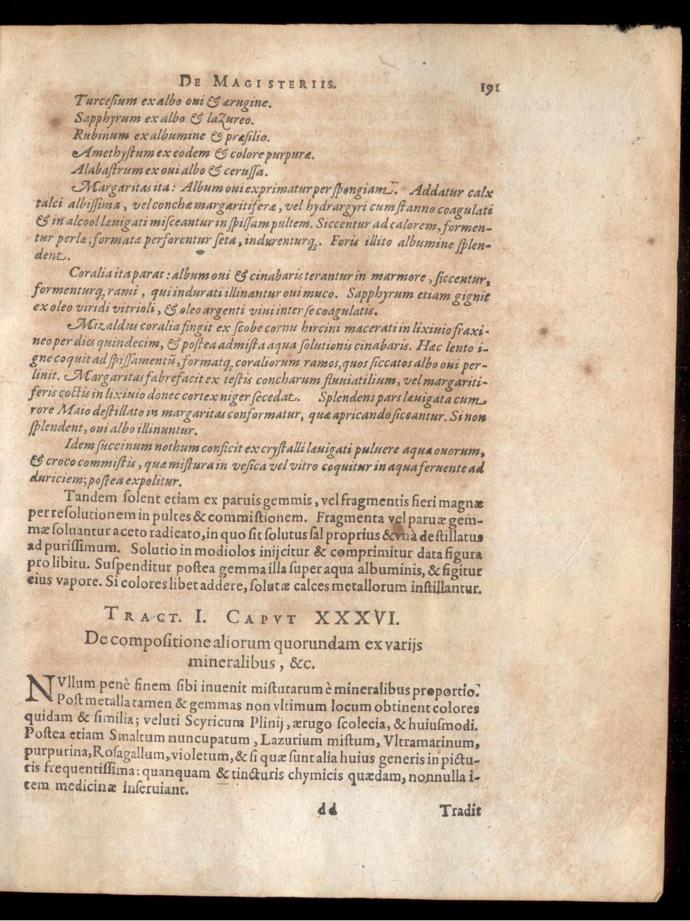 DE MAGISTERIIS. 191
Turcesium ex albo oui & ærugine.
Sapphyrum ex albo & lazureo.
Rubinum ex albumine & præsilio.
Amethystum ex eodem & colore purpuræ.
Alabastrum ex oui albo & cerussa.
Margaritas ita: Album oui exprimatur per spongiam. Addatur calx
talci albissima, vel conchæ margaritiferæ, vel hydrargyri cum stanno coagulati
& in alcool læuigati misceantur in spissam pultem. Siccentur ad calorem, formen-
tur perlæ, formatæ perforentur seta, indurenturq́;. Foris illito albumine splen-
dent.
Coralia ita parat: album oui & cinabaris terantur in marmore, siccentur,
formenturq́; rami, qui indurati illinantur oui muco. Sapphyrum etiam gignit
ex oleo viridi vitrioli, & oleo argenti viui inter se coagulatis.
Mizaldus coralia fingit ex scobe cornu hircini macerati in lixiuio fraxi-
neo per dies quindecim, & postea admista aqua solutionis cinabaris. Hac lento i-
gne coquit ad spissamentũ, formatq́; coraliorum ramos, quos siccatos albo oui per-
linit. Margaritas fabrefacit ex testis concharum fluuiatilium, vel margariti-
feris coctis in lixiuio donec cortex niger secedat. Splendens pars læuigata cum
rore Maio destillato in margaritas conformatur, quæ apricando siccantur. Si non
splendent, oui albo illinuntur.
Idem succinum nothum conficit ex crystalli læuigati puluere aqua ouorum,
& croco commistis, quæ mistura in vesica vel vitro coquitur in aqua feruente ad
duriciem; postea expolitur.
Tandem solent etiam ex paruis gemmis, vel fragmentis fieri magnæ
per resolutionem in pultes & commistionem. Fragmenta vel paruæ gem-
mæ soluantur aceto radicato, in quo sit solutus sal proprius & vnà destillatus
ad purissimum. Solutio in modiolos inijcitur & comprimitur data figura
pro libitu. Suspenditur postea gemma illa super aqua albuminis, & figitur
eius vapore. Si colores libet addere, solutæ calces metallorum instillantur.
TRACT. I. CAPVT XXXVI.
De compositione aliorum quorundam ex varijs
mineralibus, &c.
NVllum penè finem sibi inuenit misturarum è mineralibus proportio.
Post metalla tamen & gemmas non vltimum locum obtinent colores
quidam & similia; veluti Scyricum Plinij, ærugo scolecia, & huiusmodi.
Postea etiam Smaltum nuncupatum, Lazurium mistum, Vltramarinum,
purpurina, Rosagallum, violetum, & si quæ sunt alia huius generis in pictu-
ris frequentissima: quanquam & tincturis chymicis quædam, nonnulla i-
tem medicinæ inseruiant.
dd Tradit